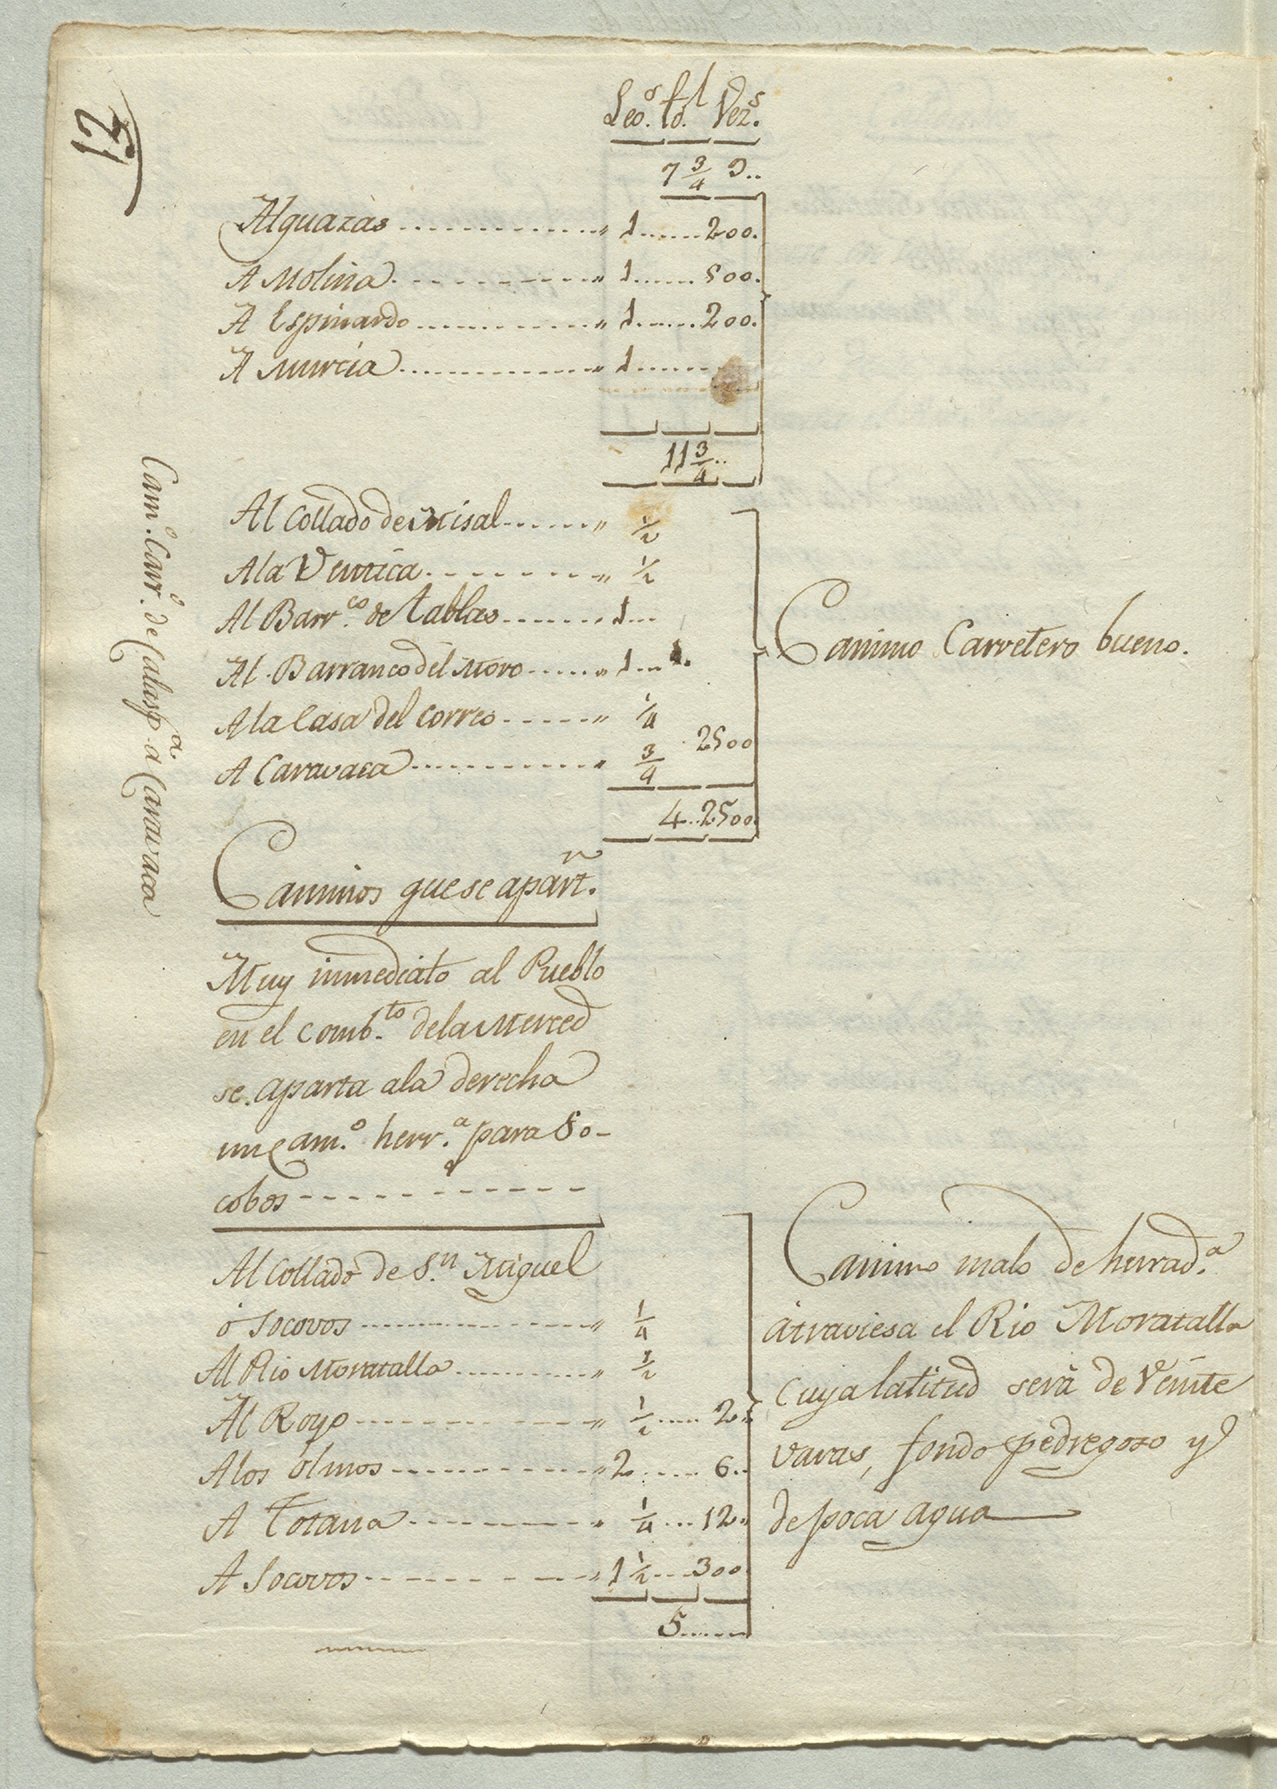 12
Leg.s td.l Vez.s
7 3/4 3..
Alguazas ............ " 1......200.
A Molina ............ " 1......500.
A Espinardo ............ " 1......200.
A Murcia ............ " 1......
11 3/4 ..
Cam.o Carr.o de Calasp.a a Caravaca
Al Collado de Misal ...... " 1/2
A la Ventica ........ " 1/2
Al Barr.co de tablas ....... 1...
Al Barranco del Moro ..... " 1...
A la Casa del Correo ...... " 1/4
2500
A Caravaca ........... " 3/4
4..2500.
Camino Carretero bueno.
Caminos que se apart.n
Muy inmediato al Pueblo
en el comb.to de la Merced
se aparta a la derecha
un Cam.o herr.a para So-
cobos ------------
Al Collado de S.n Miguel
ó Socovos ............ " 1/4
Al Rio Moratalla .......... " 1/2
Al Royo ............ " 1/2 ..... 2.
A los olmos ............ " 2 ..... 6..
A Totana ............ " 1/4 ... 12.
A Socovos ............ " 1 1/2 .... 300
5......
Camino malo de herrad.a
atraviesa el Rio Moratalla
cuya latitud será de Veinte
varas, fondo pedregoso y
de poca agua